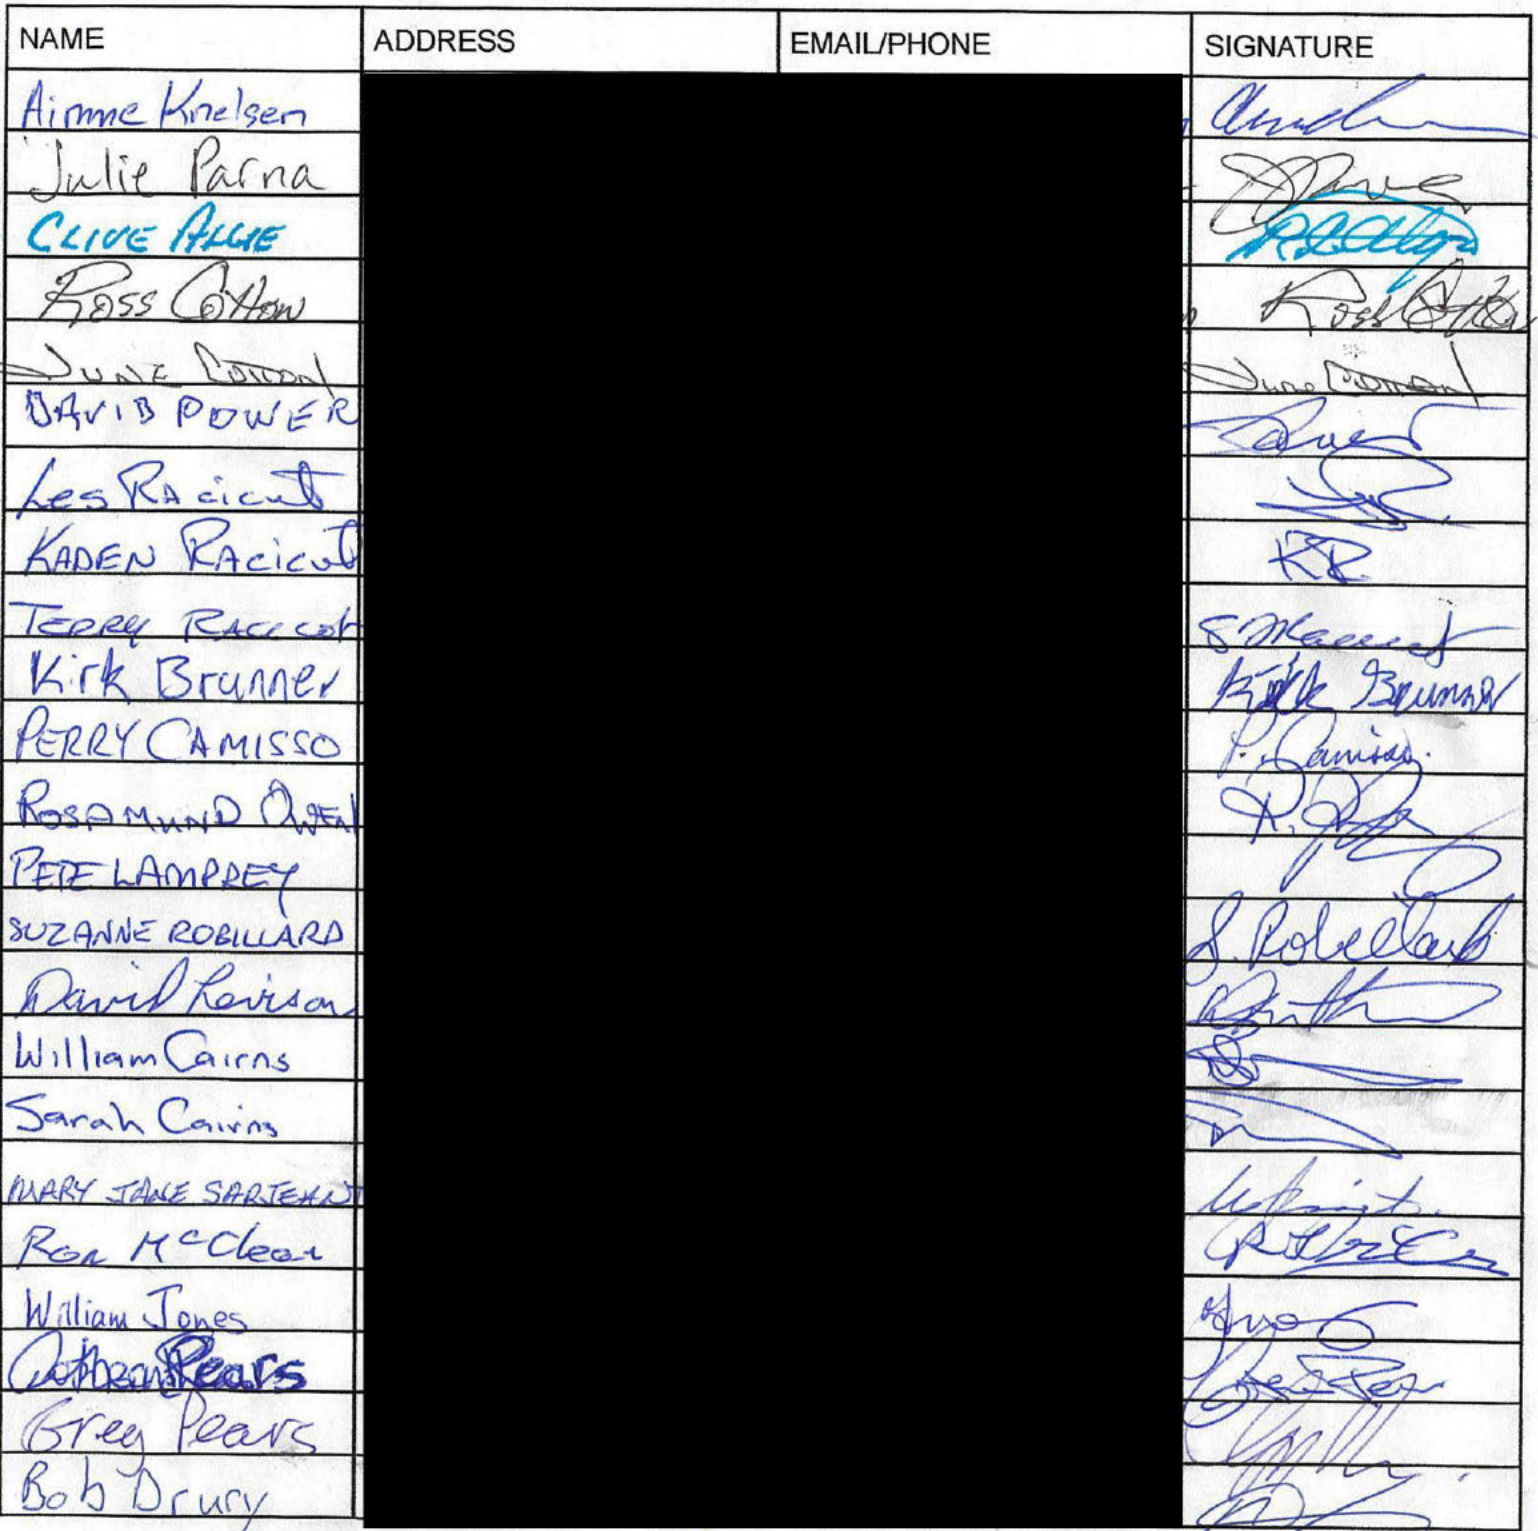 NAME ADDRESS EMAIL/PHONE SIGNATURE
Aimme Knelsen
Julie Parna
CLIVE ALLIE
Ross Cotton Ross Cotton
JUNE COTTON June COTTON
DAVID POWER
Les RAcicot
KADEN RAcicot KR
TERRY RACICOT
Kirk Brunner Kirk Brunner
PERRY CAMISSO P. Camisso.
ROSAMUND OWEN
PETE LAMPREY
SUZANNE ROBILLARD S. Robillard
David Levison
William Cairns
Sarah Cairns
MARY JANE SARJEANT
Ron McClean
William Jones
Pears
Greg Pears
Bob Drury